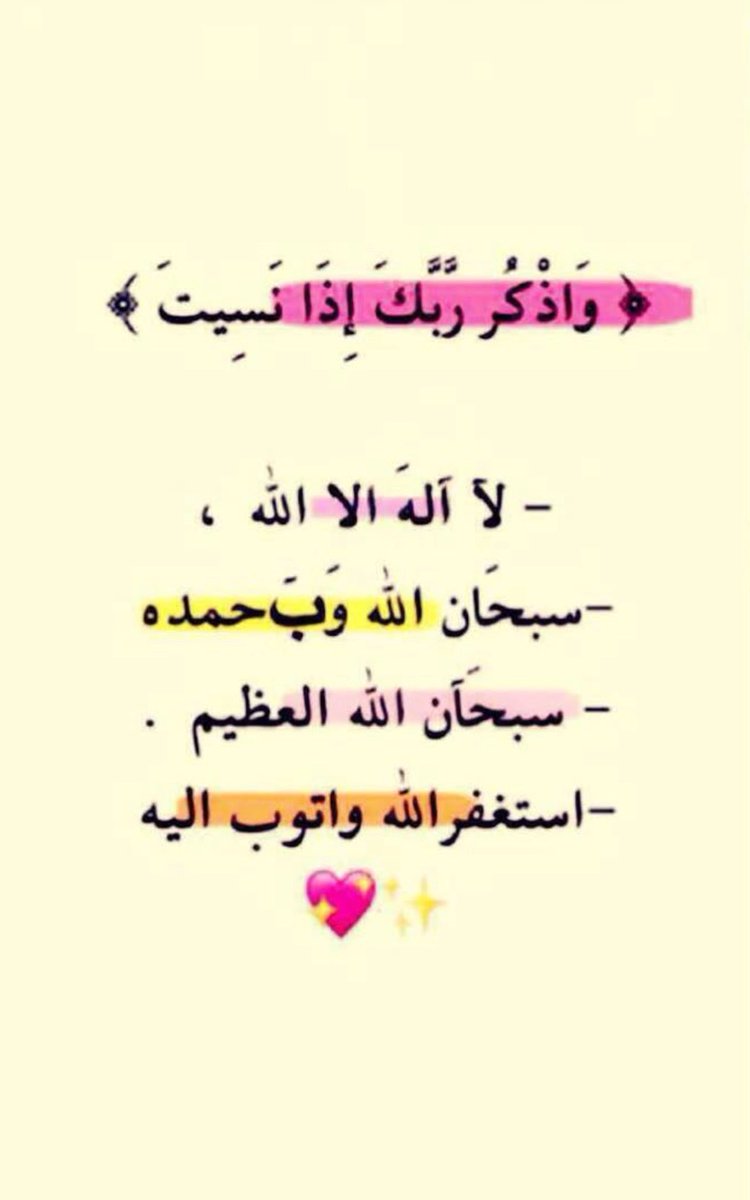 ﴿ وَاذْكُر رَّبَّكَ إِذَا نَسِيتَ ﴾
– لآ آلهَ الا الله ،
–سبحَان الله وَبَحمده
– سبحَآن الله العظيم .
–استغفرالله واتوب اليه
💖✨